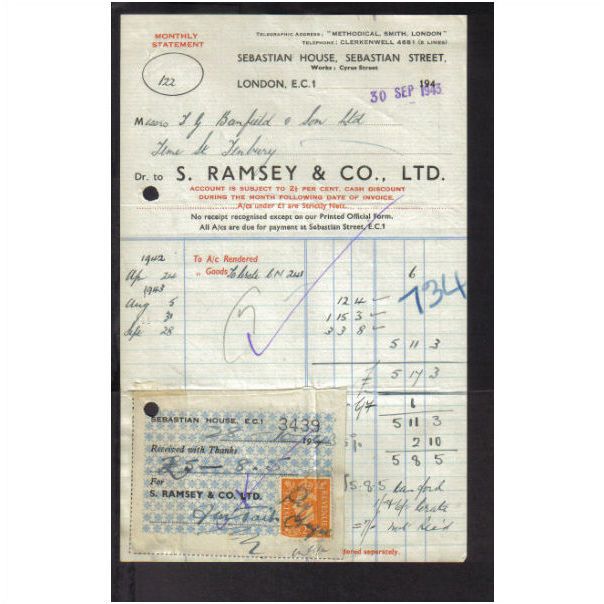 MONTHLY
STATEMENT
TELEGRAPHIC ADDRESS: "METHODICAL, SMITH, LONDON"
TELEPHONE: CLERKENWELL 4681 (2 LINES)
SEBASTIAN HOUSE, SEBASTIAN STREET,
Works: Cyrus Street
LONDON, E.C.1 194
122
30 SEP 1943
Messrs T G Banfield & Son Ltd
Teme St Tenbury
Dr. to S. RAMSEY & CO., LTD.
ACCOUNT IS SUBJECT TO 2½ PER CENT. CASH DISCOUNT
DURING THE MONTH FOLLOWING DATE OF INVOICE.
A/cs under £1 are Strictly Nett.
No receipt recognised except on our Printed Official Form.
All A/cs are due for payment at Sebastian Street, E.C.1
1942 To A/c Rendered
Ap 24 " Goods CN 6
1943
Aug 5 12 4
31 1 15 3
Sept 28 3 3 8
734
5 11 3
5 17 3
6
5 11 3
2 10
5 8 5
SEBASTIAN HOUSE, E.C.1 3439
Received with Thanks
£5 - 8 - 5
For
S. RAMSEY & CO. LTD.
REVENUE
5.8.5
rendered separately.